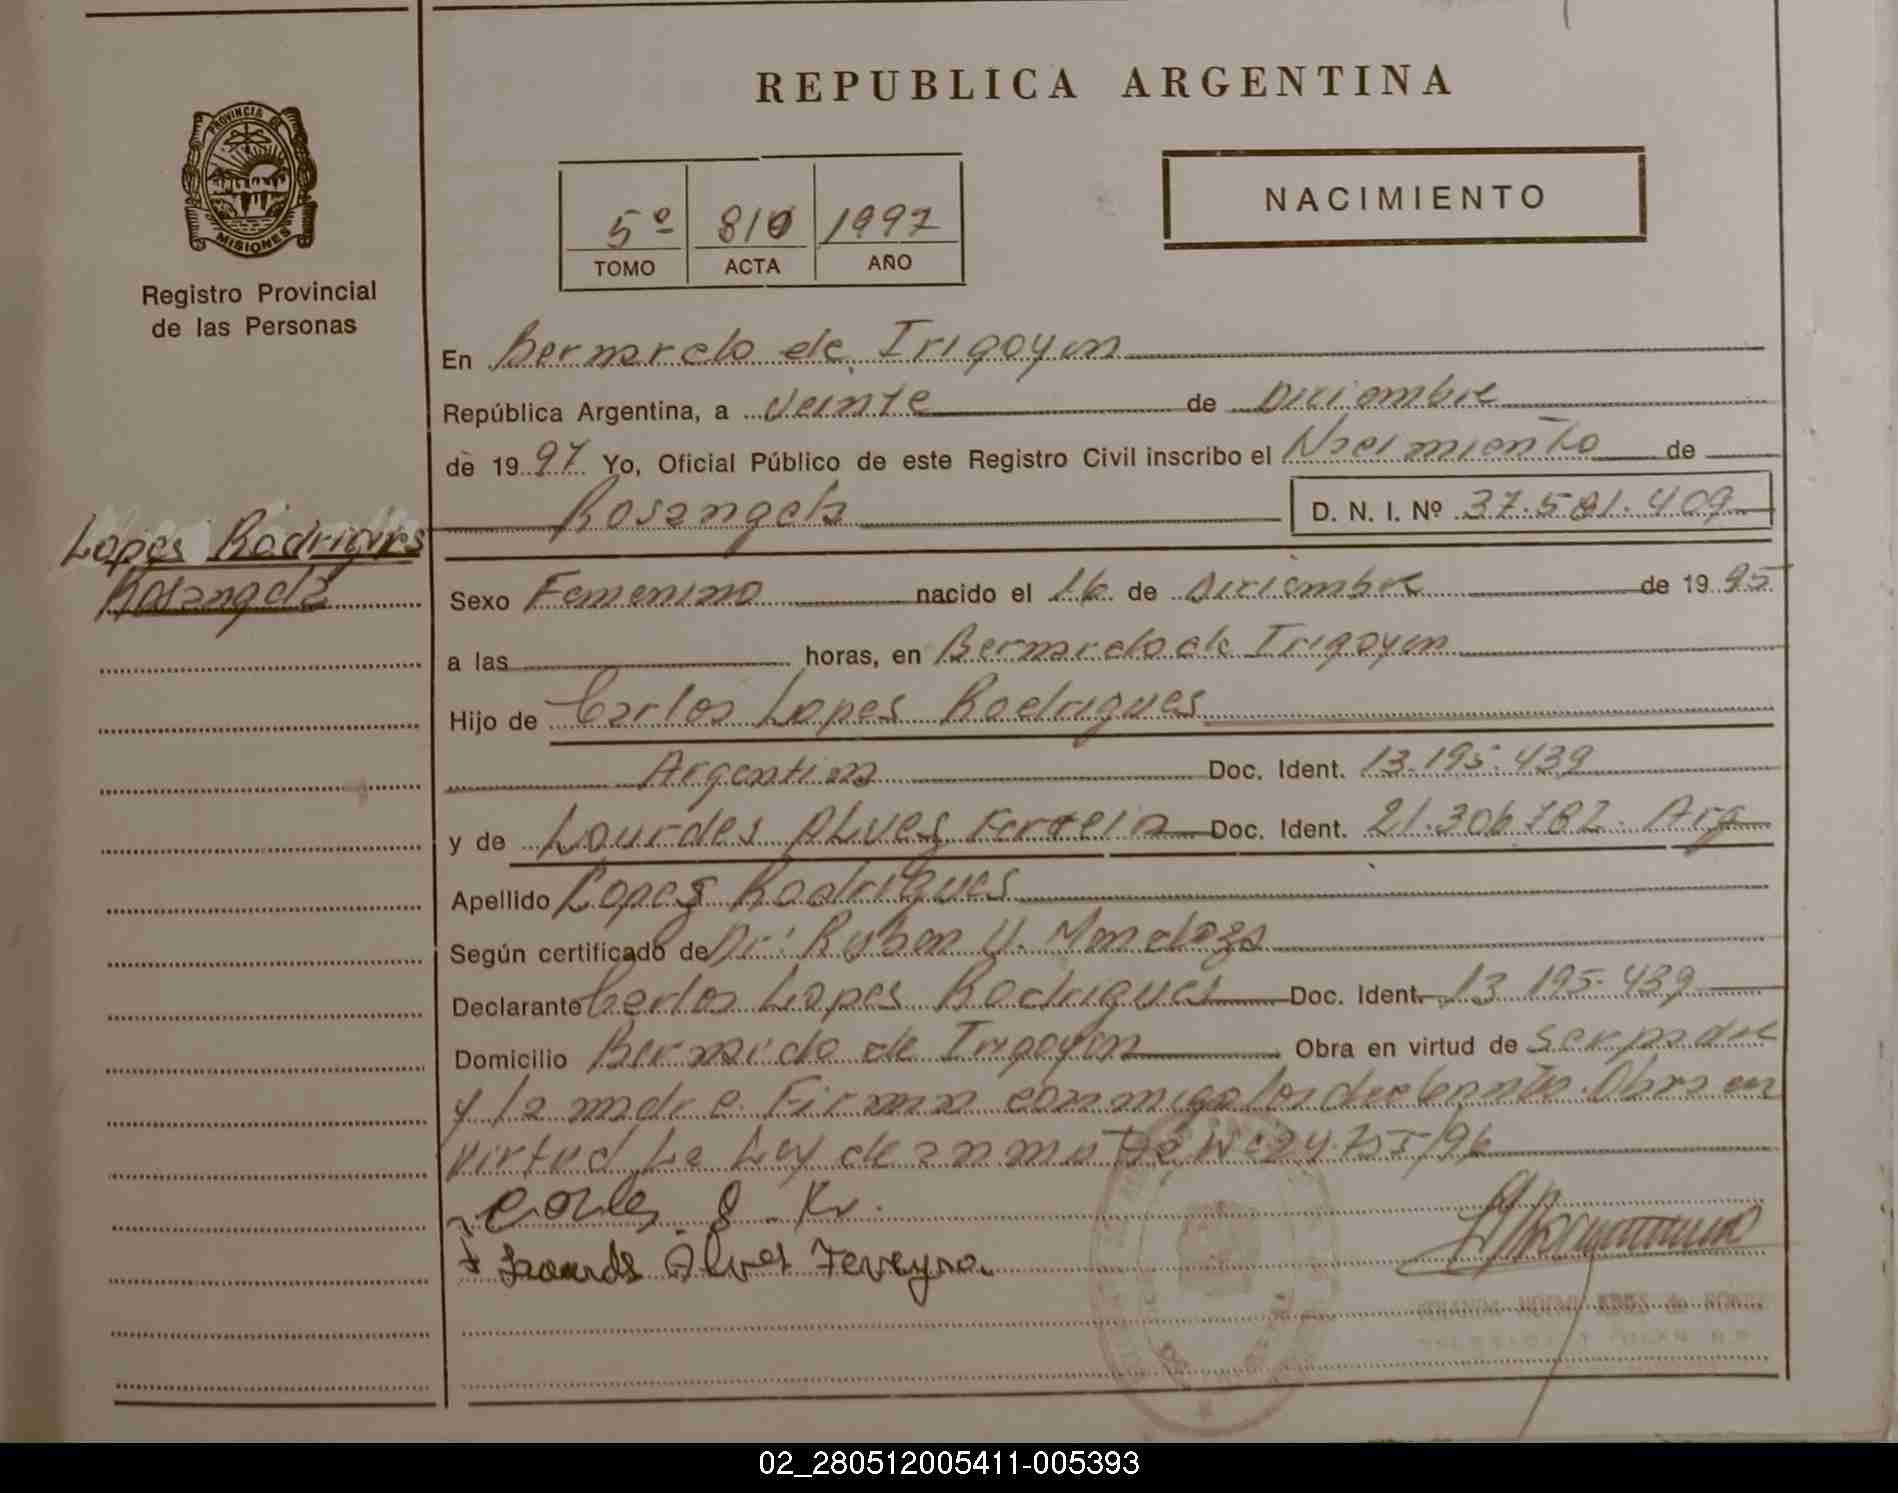 REPUBLICA ARGENTINA
PROVINCIA DE
MISIONES
Registro Provincial
de las Personas
5º 810 1997
TOMO ACTA AÑO
NACIMIENTO
En Bernardo de Irigoyen
República Argentina, a veinte de Diciembre
de 1997 Yo, Oficial Público de este Registro Civil inscribo el Nacimiento de
Rosangela D. N. I. Nº 37.581.409
Lopes Rodrigues
Rosangela
Sexo Femenino nacido el 16 de Diciembre de 1995
a las horas, en Bernardo de Irigoyen
Hijo de Carlos Lopes Rodrigues
Argentina Doc. Ident. 13.195.439
y de Lourdes Alves Ferreira Doc. Ident. 21.306.782. Arg
Apellido Lopes Rodrigues
Según certificado de Dr: Ruben U. Mendoza
Declarante Carlos Lopes Rodrigues Doc. Ident. 13 195.439
Domicilio Bernardo de Irigoyen Obra en virtud de ser padre
y la madre. Firman conmigo los declarante. Obra en
virtud La Ley de amnistia Nº 24.755/96
Alves Ferreyra
02_280512005411-005393